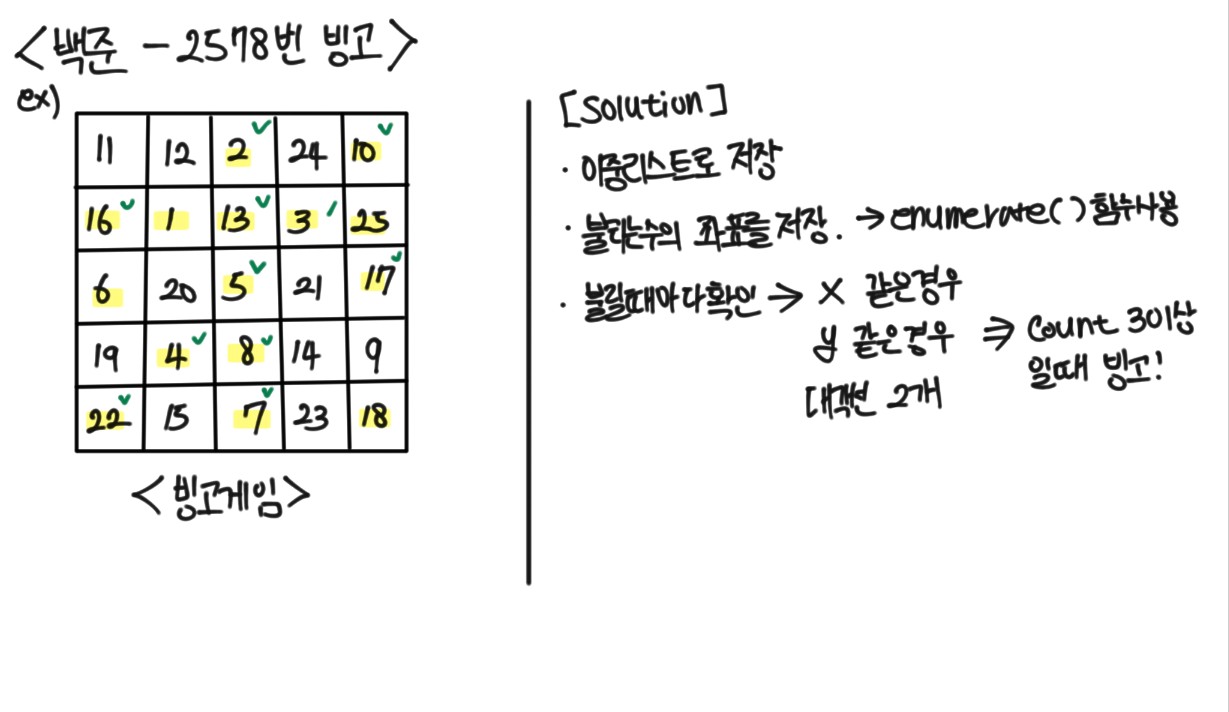 <백준 - 2578번 빙고>
ex)
11 12 2 24 10
16 1 13 3 25
6 20 5 21 17
19 4 8 14 9
22 15 7 23 18
<빙고게임>
[Solution]
· 이중리스트로 저장
· 불리는수의 좌표를 저장. → enumerate() 함수사용
· 불릴때마다 확인 → x 같은경우
y 같은경우 ⇒ count 3이상
대각선 2개 일때 빙고!